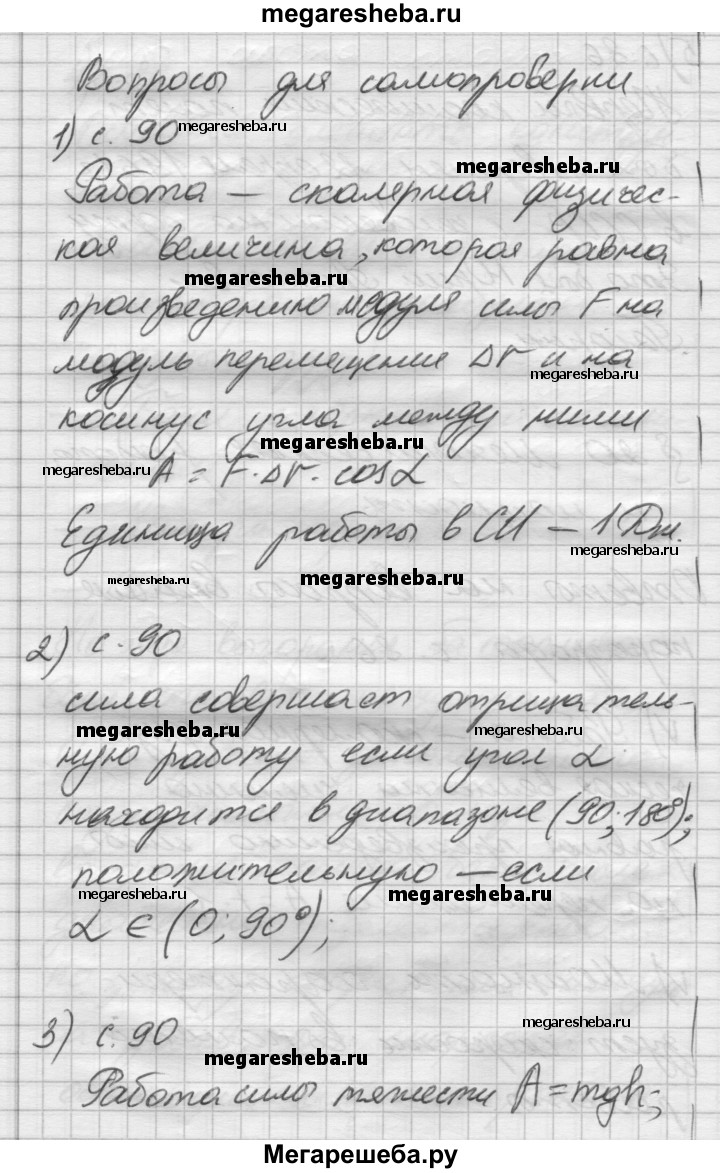 megaresheba.ru
Вопросы для самопроверки
1) с. 90
megaresheba.ru
megaresheba.ru
Работа — скалярная физичес-
кая величина, которая равна
megaresheba.ru
произведению модуля силы F на
модуль перемещения Δr и на
megaresheba.ru
косинус угла между ними
megaresheba.ru
megaresheba.ru
A = F·Δr·cosα
Единица работы в СИ — 1 Дж.
megaresheba.ru
megaresheba.ru
megaresheba.ru
2) с. 90
сила совершает отрицатель-
megaresheba.ru
megaresheba.ru
ную работу если угол α
находится в диапазоне (90; 180°);
положительную — если
megaresheba.ru
megaresheba.ru
α ∈ (0; 90°);
3) с. 90
megaresheba.ru
megaresheba.ru
Работа силы тяжести A = mgh;
Мегарешеба.ру